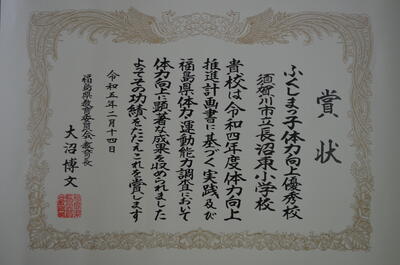 賞状
ふくしまっ子体力向上優秀校
須賀川市立長沼東小学校
貴校は令和四年度体力向上
推進計画書に基づく実践及び
福島県体力・運動能力調査において
体力向上に顕著な成果を収められました
よってその功績をたたえこれを賞します
令和五年二月十四日
福島県教育委員会教育長
大沼博文